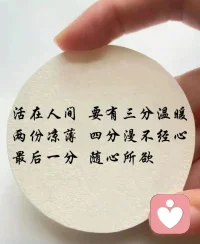 活在人间 要有三分温暖
两份凉薄 四分漫不经心
最后一分 随心所欲